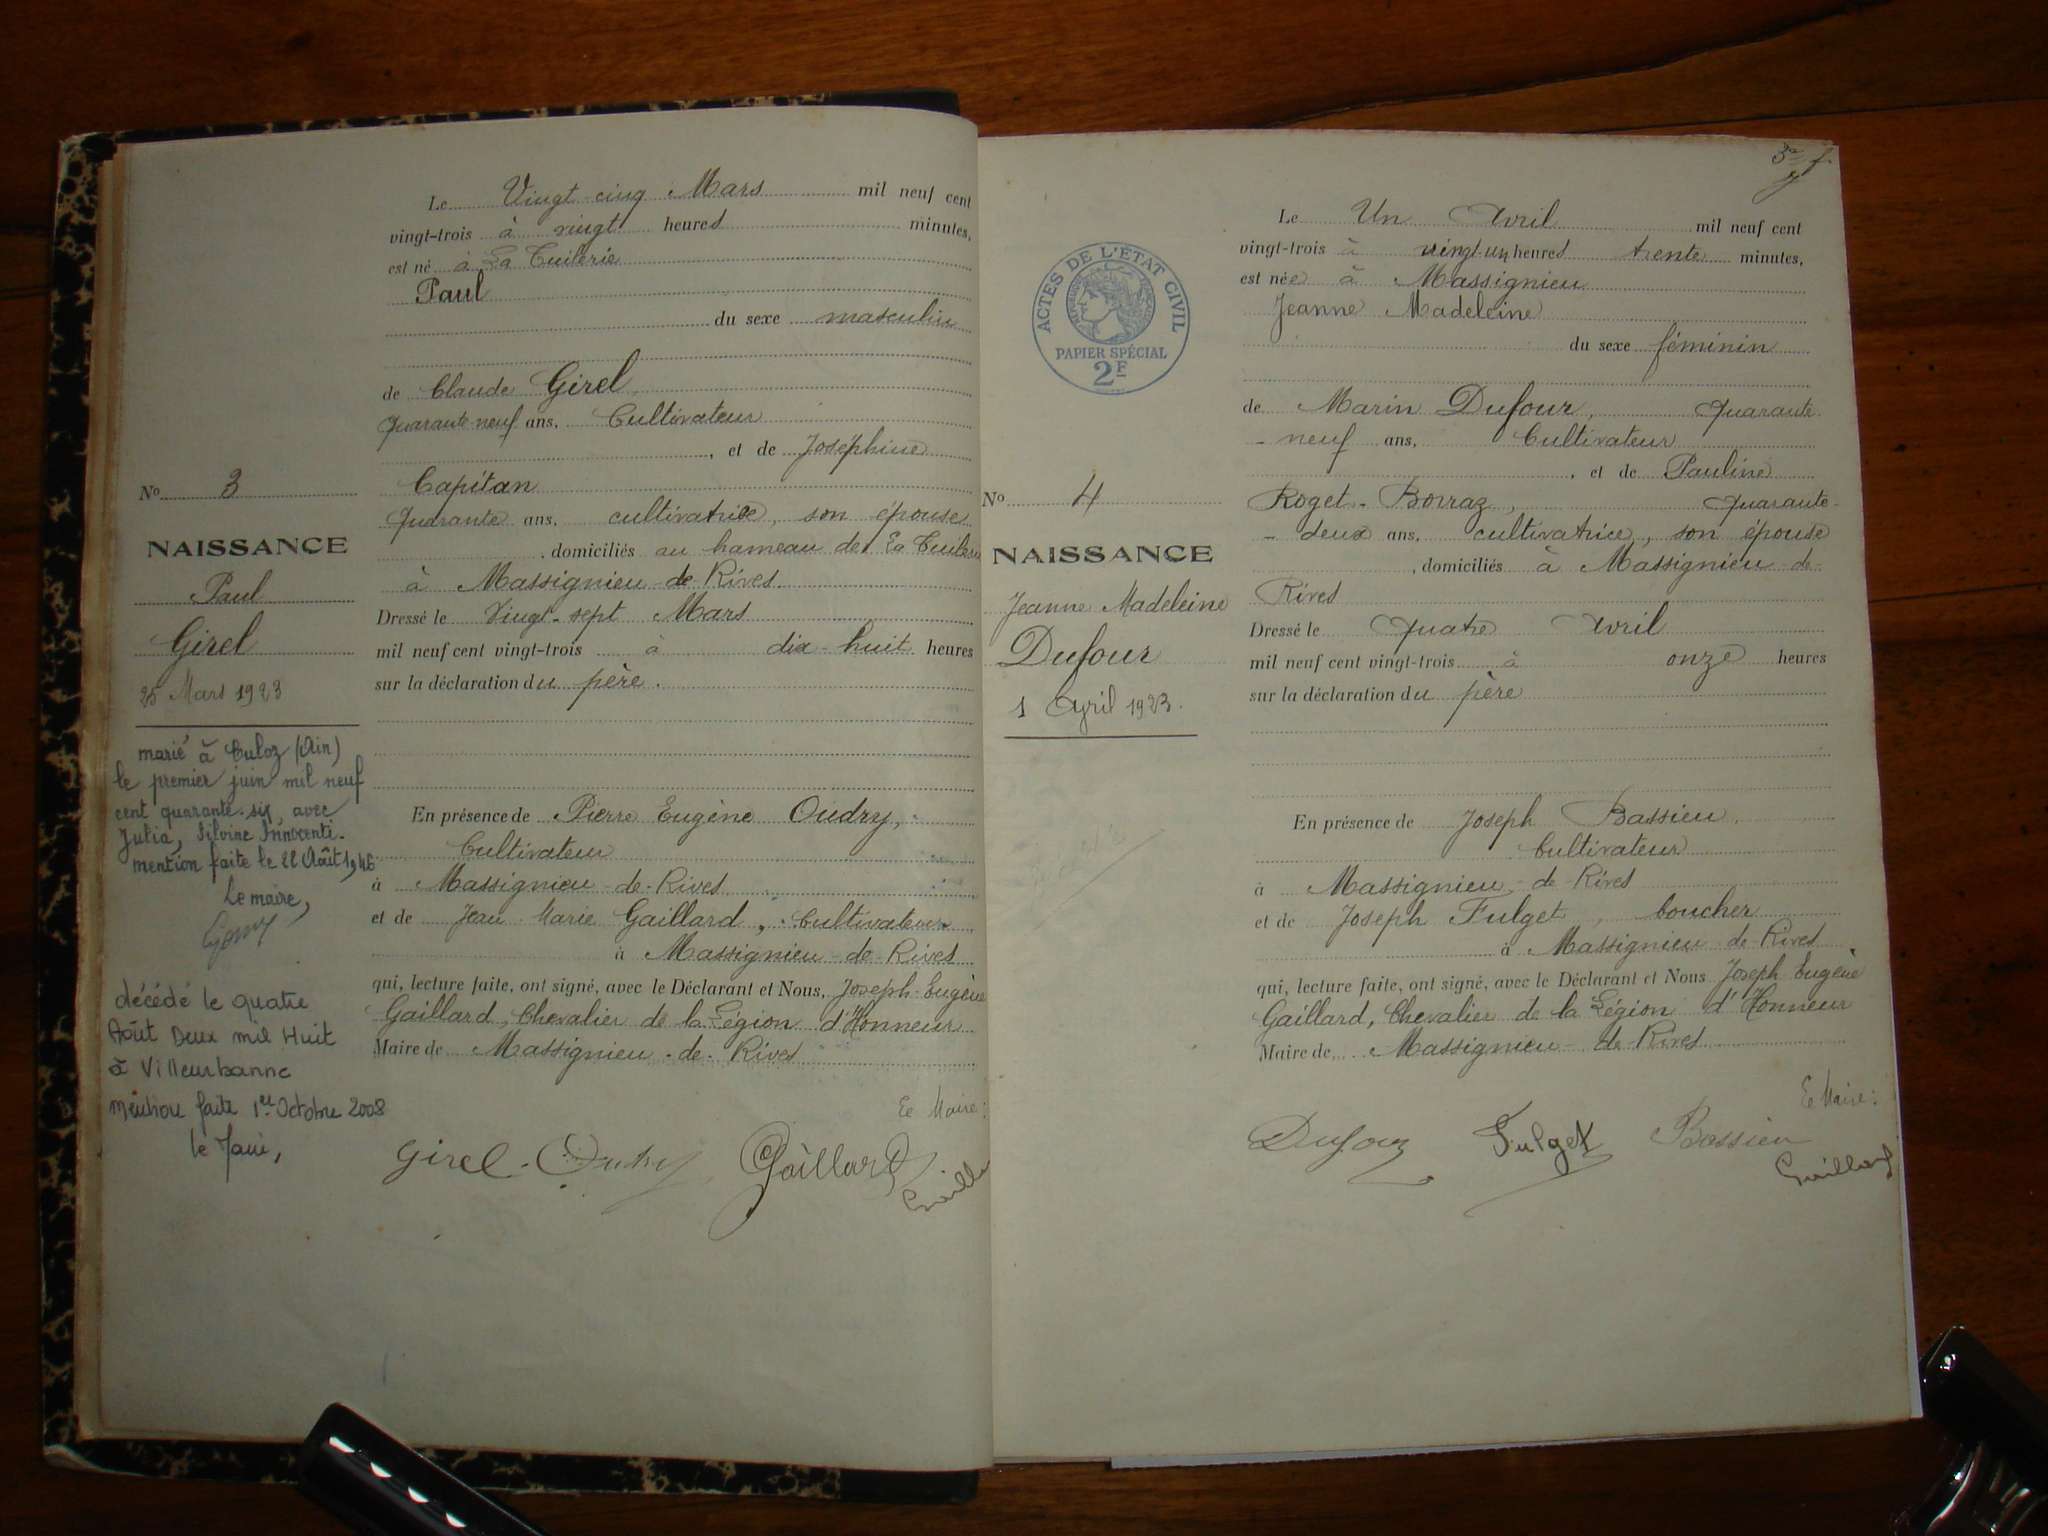 Le Vingt-cinq Mars mil neuf cent
vingt-trois à vingt heures minutes,
est né à La Tuilerie
Paul
du sexe masculin
de Claude Girel
quarante-neuf ans, Cultivateur
, et de Joséphine
Capitan
quarante ans, cultivatrice, son épouse
, domiciliés au hameau de La Tuilerie
à Massignieu-de-Rives
Dressé le Vingt-sept Mars
mil neuf cent vingt-trois à dix-huit heures
sur la déclaration du père.
En présence de Pierre Eugène Oudry,
Cultivateur
à Massignieu-de-Rives
et de Jean-Marie Gaillard, Cultivateur
à Massignieu-de-Rives
qui, lecture faite, ont signé, avec le Déclarant et Nous, Joseph-Eugène
Gaillard, Chevalier de la Légion d'Honneur
Maire de Massignieu-de-Rives
Le Maire:
Girel Oudry Gaillard
No 3
NAISSANCE
Paul
Girel
25 Mars 1923
marié à Culoz (Ain)
le premier juin mil neuf
cent quarante-six, avec
Julia, Silvine Innocenti.
mention faite le 22 Août 1946
Le maire,
décédé le quatre
Août Deux mil Huit
à Villeurbanne
mention faite 1er Octobre 2008
le Maire,
ACTES DE L'ÉTAT CIVIL
PAPIER SPÉCIAL
2F
No 4
NAISSANCE
Jeanne Madeleine
Dufour
1 Avril 1923.
Le Un Avril mil neuf cent
vingt-trois à vingt-un heures trente minutes,
est née à Massignieu
Jeanne Madeleine
du sexe féminin
de Marin Dufour, quarante-
-neuf ans, Cultivateur
, et de Pauline
Roget-Borraz, quarante-
-deux ans, cultivatrice, son épouse
, domiciliés à Massignieu-de-
Rives
Dressé le Quatre Avril
mil neuf cent vingt-trois à onze heures
sur la déclaration du père
En présence de Joseph Bassieu,
Cultivateur
à Massignieu-de-Rives
et de Joseph Fulget, boucher
à Massignieu-de-Rives
qui, lecture faite, ont signé, avec le Déclarant et Nous Joseph-Eugène
Gaillard, Chevalier de la Légion d'Honneur
Maire de Massignieu-de-Rives
Le Maire:
Dufour Fulget Bassieu
Gaillard